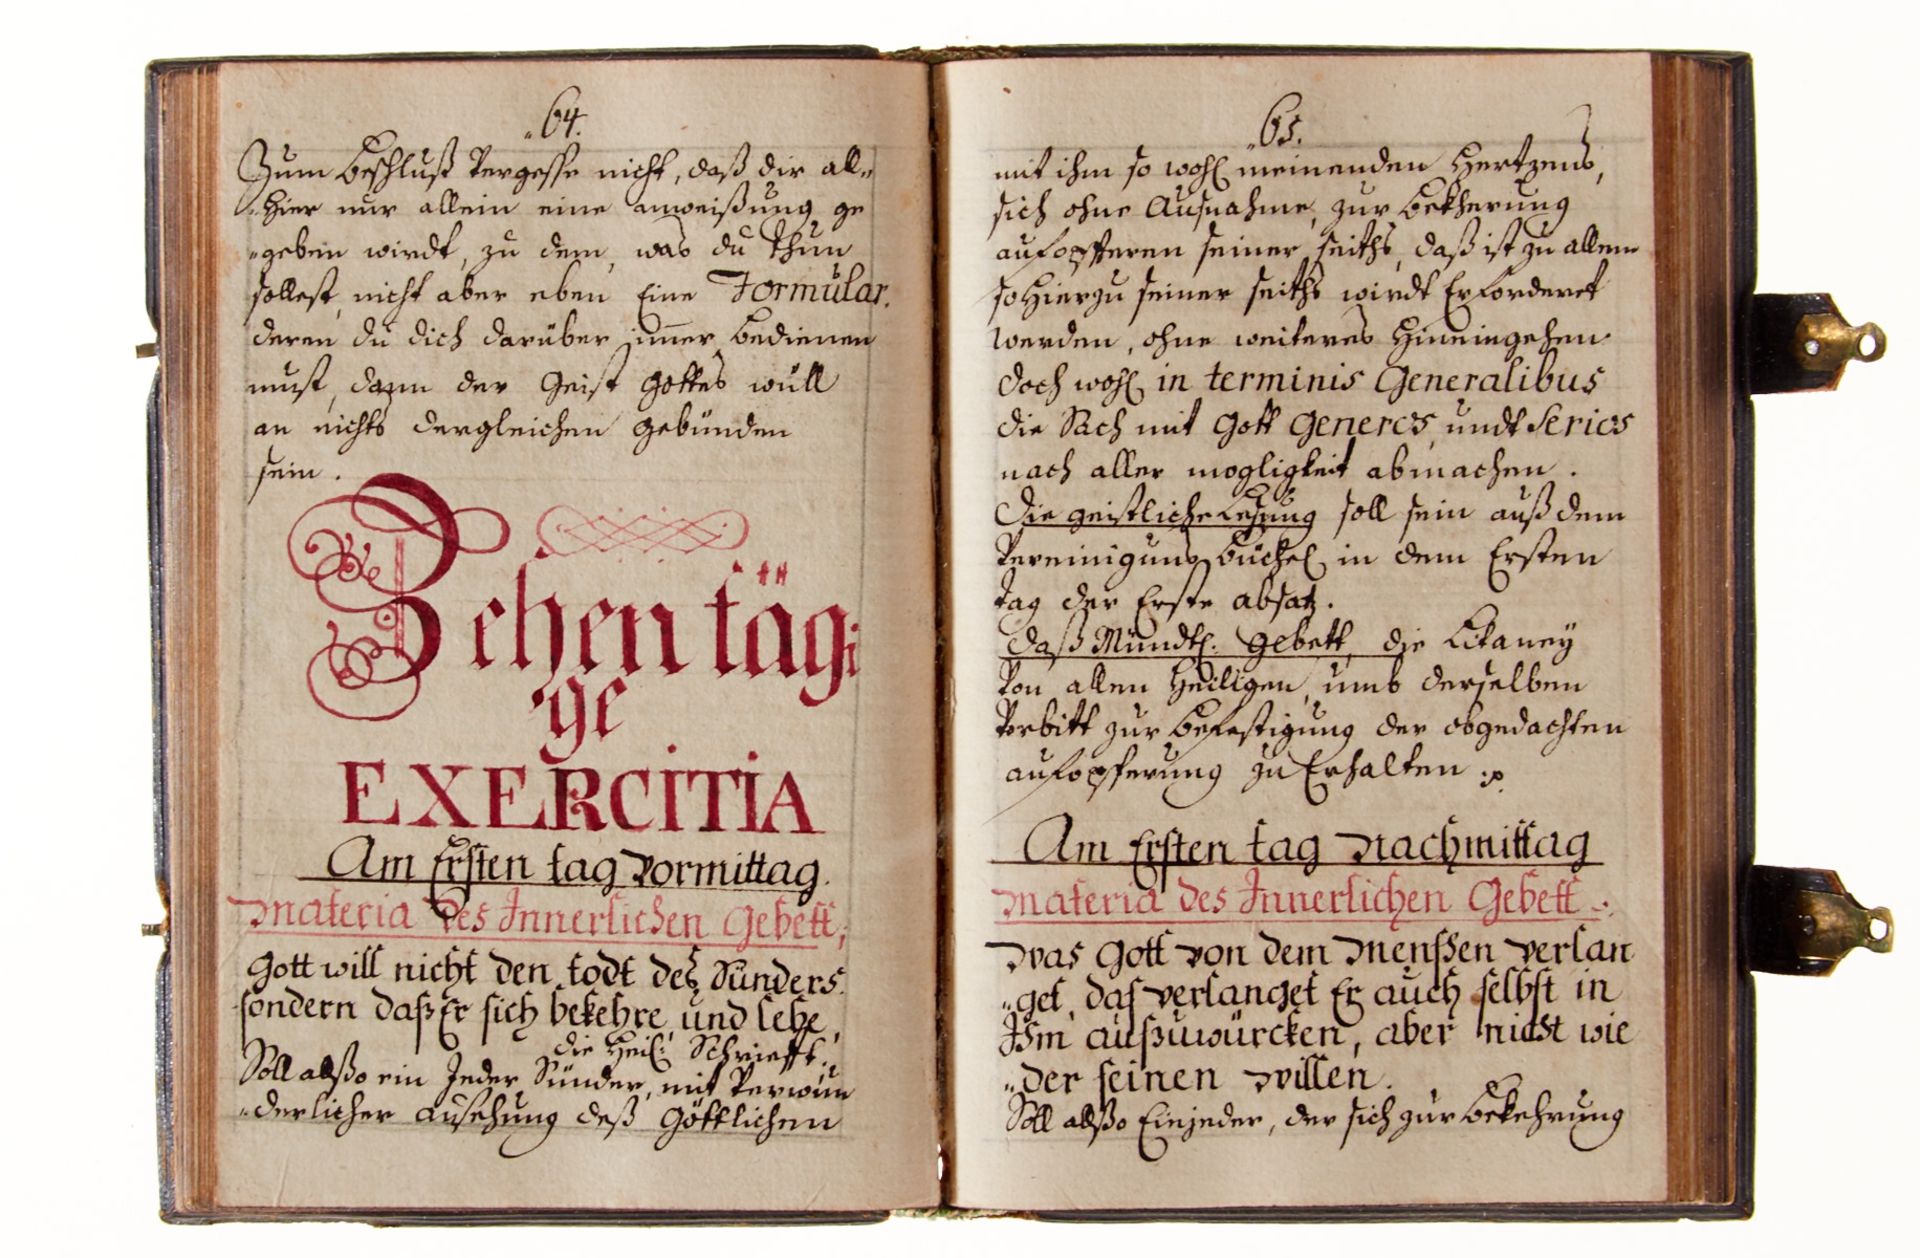 64.
Zum beschluß vergesse nicht, daß dir all„
„hier nur allein eine anweißung ge
„geben wirdt, zu dem, was du thun
sollest, nicht aber eben Eine Formular.
deren du dich darüber im̅er bedienen
must, dan̅ der Geist Gottes will
an nichts dergleichen gebunden
sein.
Zehen täg:
ge
EXERCITIA
Am Ersten tag Vormittag.
Materia des Innerlichen Gebett,
Gott will nicht den todt deß Sünders
sondern daß Er sich bekehre, und lebe,
die Heil: Schriefft.
Soll allßo ein Jeder Sünder, mit Verwun
„derlicher ansehung deß Göttlichen
65.
mit ihm so wohl meinenden Hertzens,
sich ohne Ausnahme, zur bekherung
aufopfferen seiner seiths, daß ist zu allem
so hierzu seiner seiths wirdt Erforderet
werden, ohne weiteres hineingehen
doch wohl in terminis Generalibus
die Sach mit Gott Generos, undt Serios
nach aller mogligkeit abmachen.
Die geistliche Lesung soll sein auß dem
Vereinigungs büchel in dem Ersten
tag der Erste absatz.
daß Mündtl: gebett, die Litaney
von allen Heiligen, umb derselben
Vorbitt zur befestigung der obgedachten
aufopfferung zu Erhalten
Am Ersten tag Nachmittag
Materia des Innerlichen Gebett.
Was Gott von dem Menssen verlan
„get, das verlanget Er auch selbst in
Ihm außzuwürcken, aber nicht wie
„der seinen Willen.
Soll allßo Ein jeder, der sich zur bekehrung